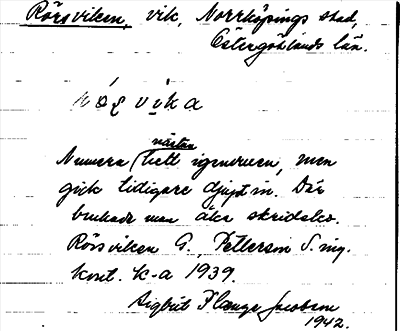 Rörsviken, vik, Norrköpings stad,
Östergötlands län.
nästan
Numera helt igenvuxen, men
gick tidigare djupt in. Där
brukade man åka skridsko.
Rörsviken G. Petterson S. ing.
kont. K-a 1939.
Sigbrit Plænge Jacobson
1942.